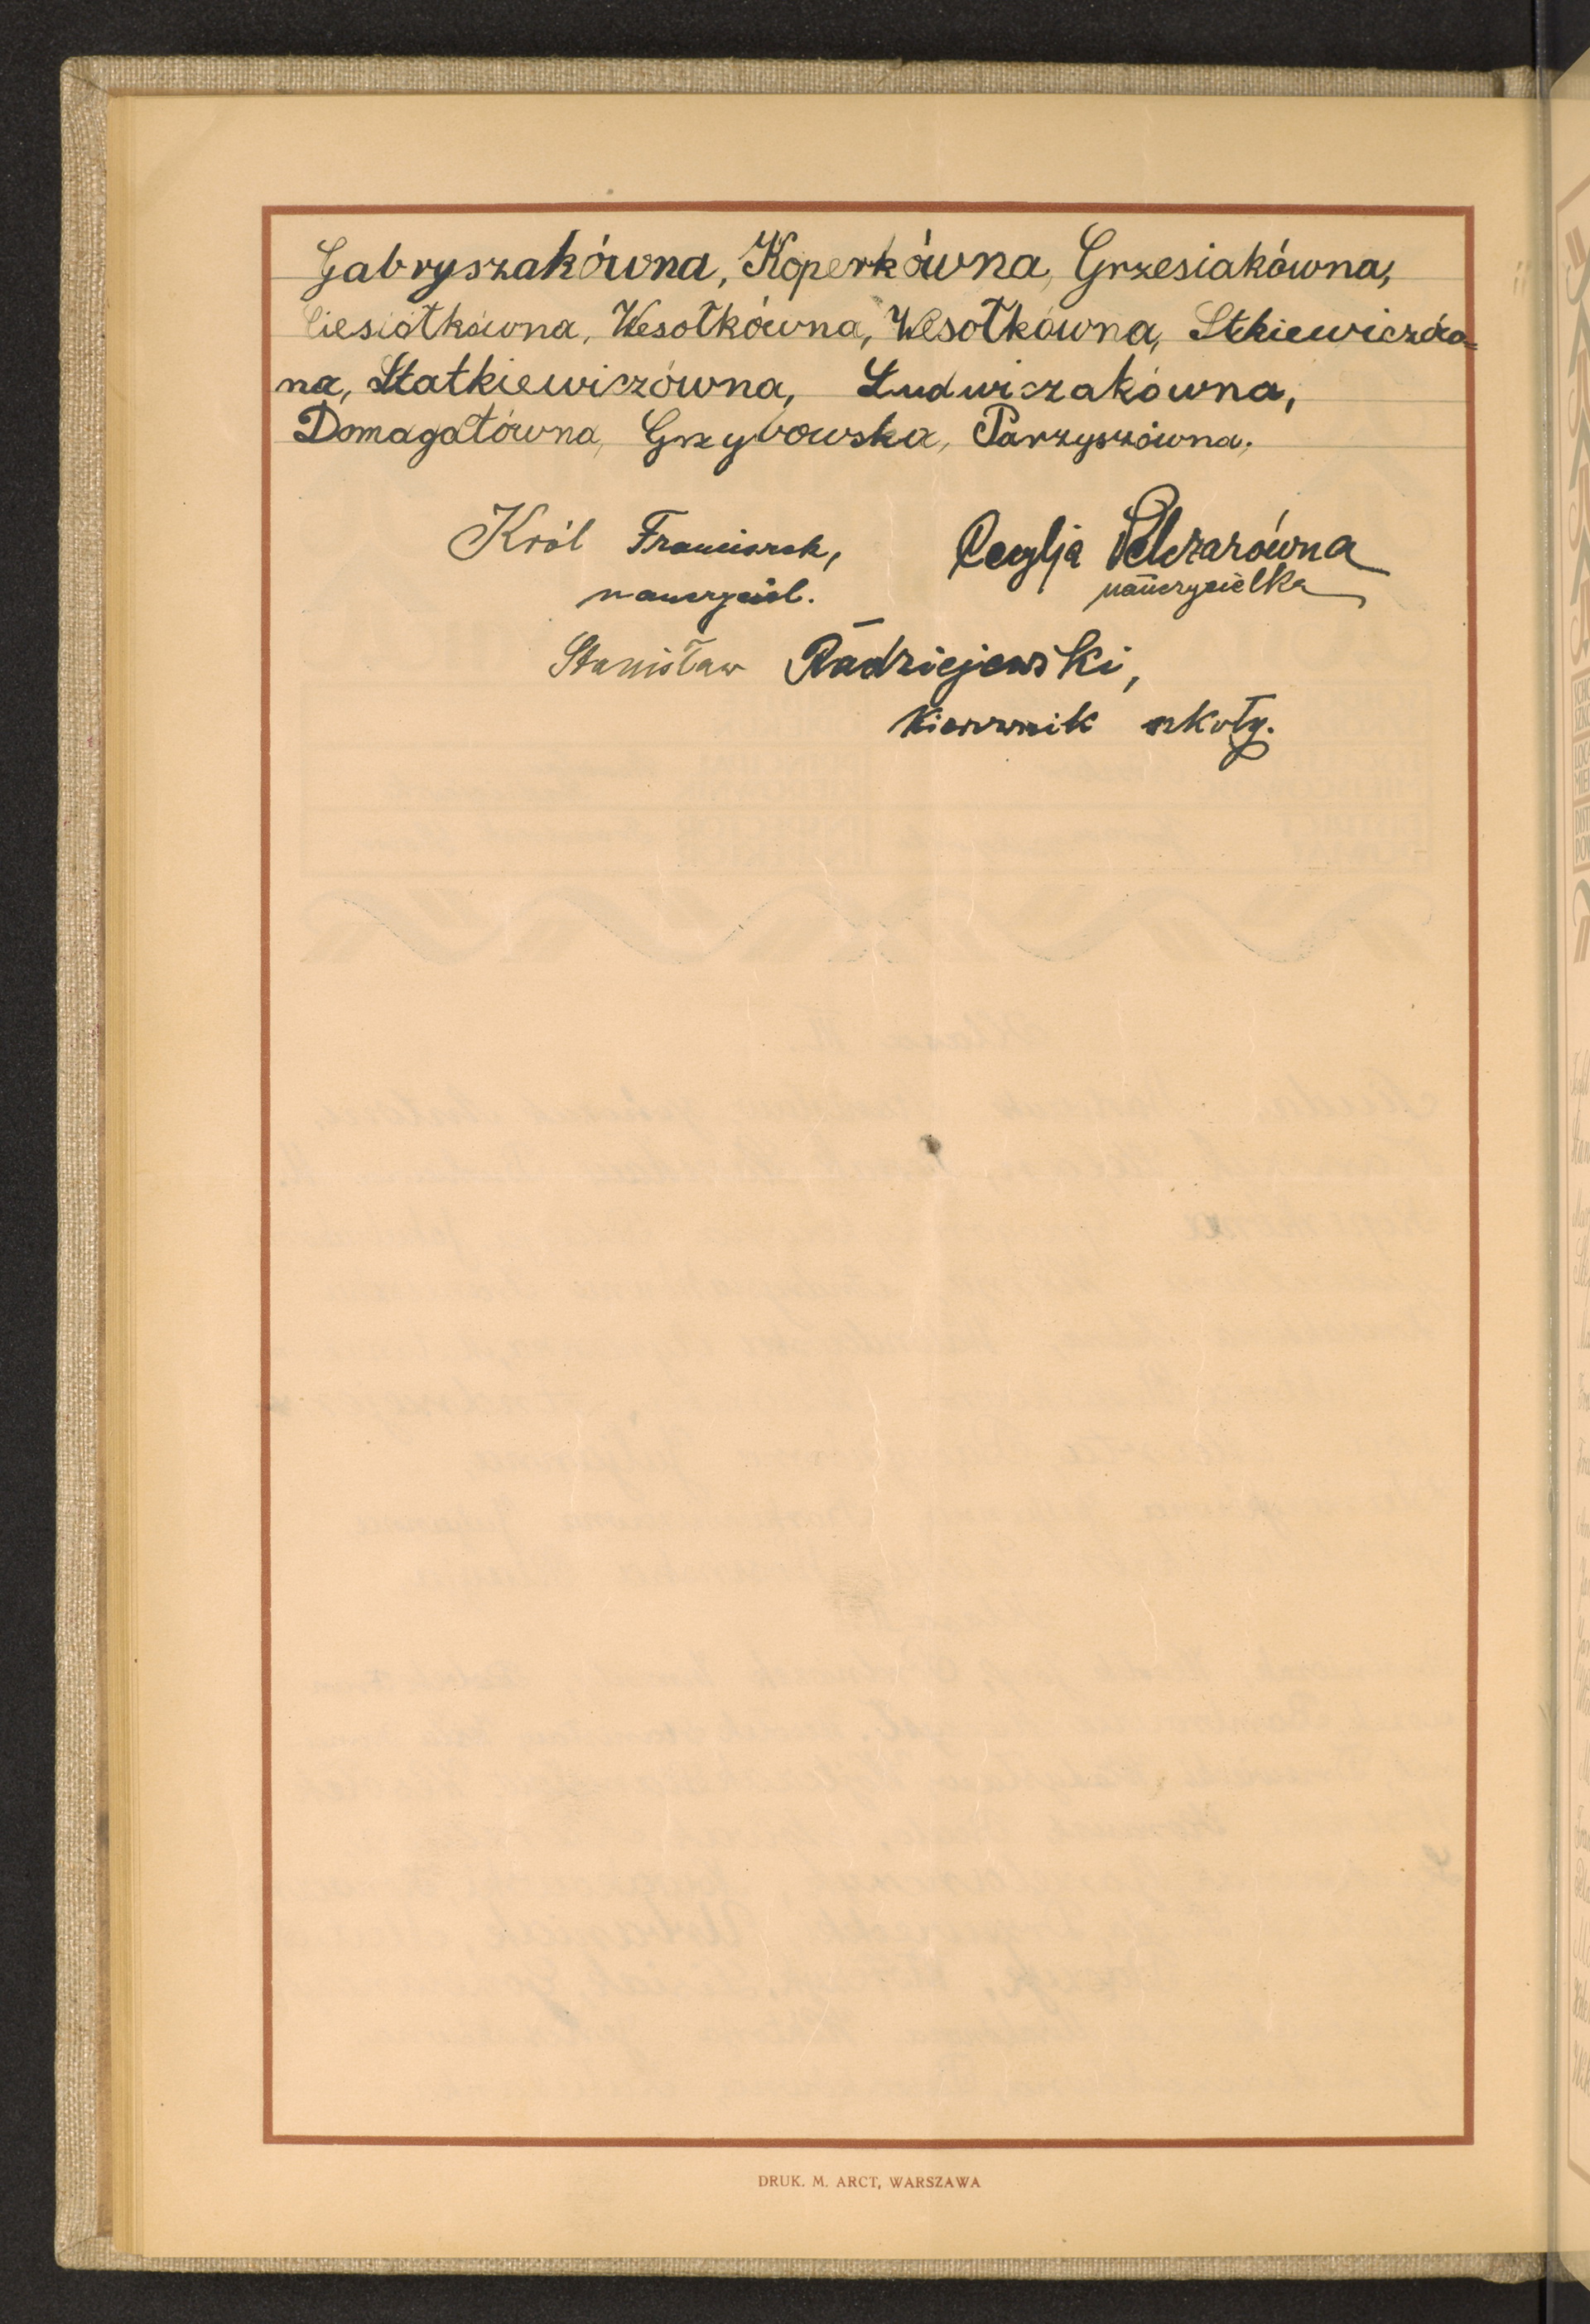 Gabryszakówna, Koperkówna, Grzesiakówna,
Ciesiołkówna, Wesołkówna, Wesołkówna, Stkiewiczów=
na, Statkiewiczówna, Ludwiczakówna,
Domagałówna, Grzybowska, Parzyszówna.
Król Franciszek, Cecylja Pelczarówna
nauczyciel. nauczycielka
Stanisław Radziejewski,
kierownik szkoły.
DRUK. M. ARCT, WARSZAWA